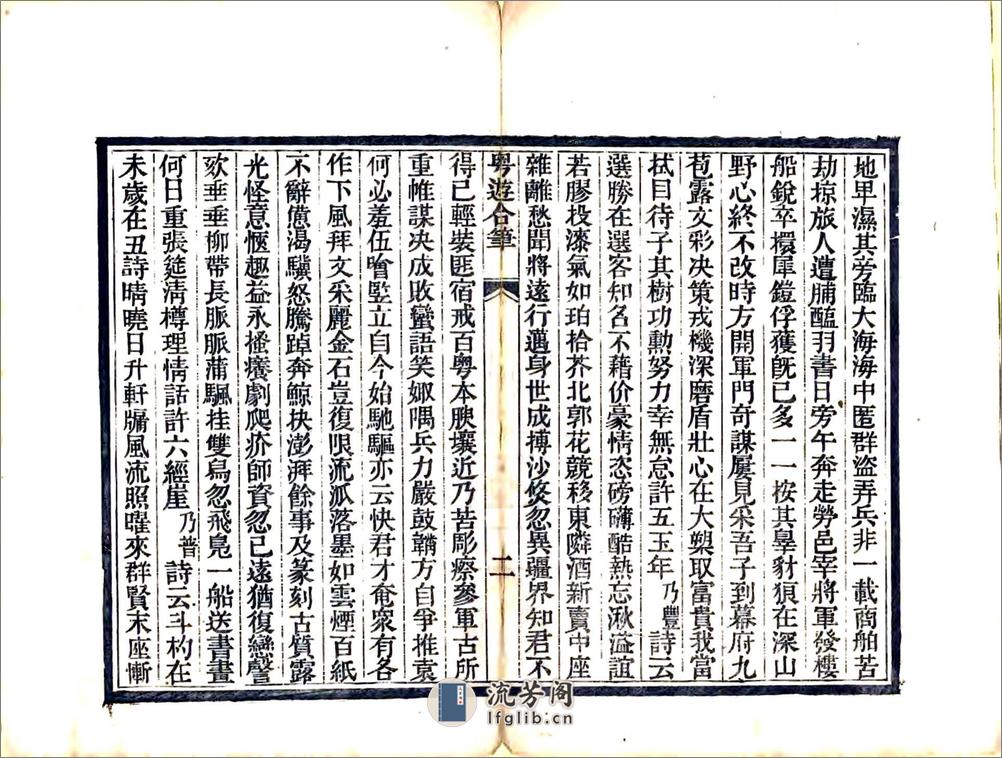 地卑濕其旁臨大海海中匿群盜弄兵非一載商舶苦
劫掠旅人遭脯醢羽書日旁午奔走勞邑宰將軍發樓
船銳卒環犀鎧俘獲旣已多一一按其辠豺狼在深山
野心終不改時方開軍門奇謀屢見采吾子到幕府九
苞露文彩决策戎機深磨盾壯心在大槊取富貴我當
拭目待子其樹功勳努力幸無怠許五玉年乃豐詩云
選勝在選客知名不藉价豪情恣磅礴酷熱忘湫溢誼
若膠投漆氣如珀拾芥北郭花競移東隣酒新賣中座
雜離愁聞將遠行邁身世成摶沙倏忽異疆界知君不
粤遊合筆
二
得已輕裝匪宿戒百粤本腴壤近乃苦彫瘵參軍古所
重帷謀决成敗蠻語笑娵隅兵力嚴鼓鞴方自爭推袁
何必羞伍噲豎立自今始馳驅亦云快君才奄衆有各
作下風拜文采麗金石豈復限流派落墨如雲煙百紙
不辭憊渴驥怒騰踔奔鯨抉澎湃餘事及篆刻古質露
光怪意愜趣益永搔癢劇爬疥師資忽已遠猶復戀謦
欬垂垂柳帶長脈脈蒲颿挂雙鳥忽飛鳧一船送書畫
何日重張筵淸樽理情話許六經崖乃普詩云斗杓在
未歲在丑詩晴曉日升軒牖風流照曜來群賢末座慚
流芳阁
lfglib.cn